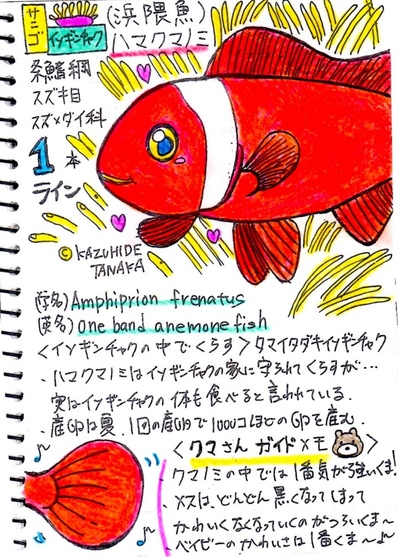 サンゴ
イソギンチャク
(浜隈魚)
ハマクマノミ
条鰭綱
スズキ目
スズメダイ科
1本
ライン
© KAZUHIDE
TANAKA
(学名) Amphiprion frenatus
(英名) One band anemone fish
<イソギンチャクの中でくらす> タマイタダキイソギンチャク
・ハマクマノミはイソギンチャクの家に守られてくらすが…
実はイソギンチャクの体も食べると言われている。
・産卵は夏。1回の産卵で1000コほどの卵を産む
<クマさんガイドメモ>
・クマノミの中では1番気が強いくま!
・メスは、どんどん黒くなってしまって
かわいくなくなっていくのがつらいくま〜
・ベイビーのかわいさは1番くま〜♪